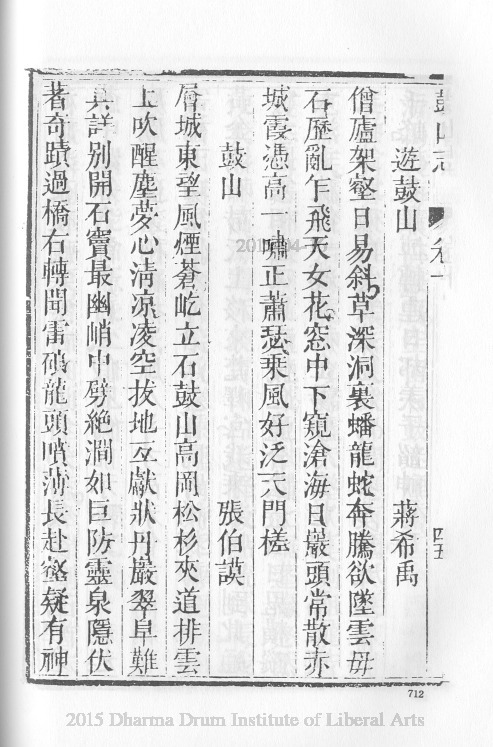 鼓山志 卷十 四五
遊鼓山 蔣希禹
僧廬架壑日易斜草深洞裏蟠龍蛇奔騰欲墜雲毋
石歷亂乍飛天女花窓中下窺滄海日巖頭常散赤
城霞憑高一嘯正蕭瑟乘風好泛天門槎
鼓山 張伯謨
層城東望風煙蒼屹立石鼓山高岡松杉夾道排雲
上吹醒塵夢心淸凉凌空拔地互獻狀丹巖翠阜難
具詳別開石竇最幽峭中劈絕澗如巨防靈泉隱伏
著奇蹟過橋右轉聞雷硠龍頭噴薄長赴壑疑有神
712
2015 Dharma Drum Institute of Liberal Arts